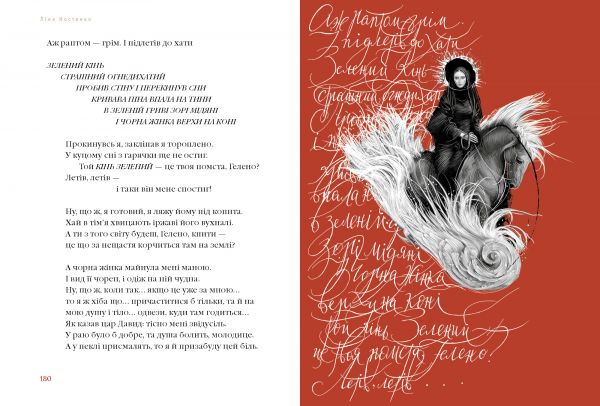 Ліна Костенко
Аж раптом — грім. І підлетів до хати
ЗЕЛЕНИЙ КІНЬ
СТРАШНИЙ ОГНЕДИХАТИЙ
ПРОБИВ СТІНУ І ПЕРЕКИНУВ СНИ
КРИВАВА ПІНА ВПАЛА НА ТИНИ
В ЗЕЛЕНІЙ ГРИВІ ЗОРІ МІДЯНІ
І ЧОРНА ЖІНКА ВЕРХИ НА КОНІ
Прокинувсь я, закліпав я тороплено.
У куцому сні з гарячки ще не остиг.
Той КІНЬ ЗЕЛЕНИЙ — це твоя помста, Гелено?
Летів, летів —
і таки він мене спостиг!
Ну, що ж, я готовий, я ляжу йому під копита.
Хай в тім'я хвицають іржаві його вухналі.
А ти з того світу будеш, Гелено, кпити —
це що за нещастя корчиться там на землі?
А чорна жінка майнула мені маною.
І вид її чорен, і одіж па ній чудна.
Ну, що ж, коли так... якщо це уже за мною...
то я ж хіба що... причаститися б тільки, та й на
мою душу і тіло... одвези, куди там годиться...
Як казав цар Давид: тісно мені звідусіль.
У раю було б добре, та душа болить, молодице.
А у пеклі присмалять, то я й призабуду цей біль.
180
Аж раптом грім.
І підлетів до хати
Зелений Кінь
Страшний огнедихат
впала на
в зеленій
Зорі мідяні
І Чорна Жінка
верхи на Коні
Той Кінь Зелений
це твоя помста, Гелено?
Летів, летів . . . .